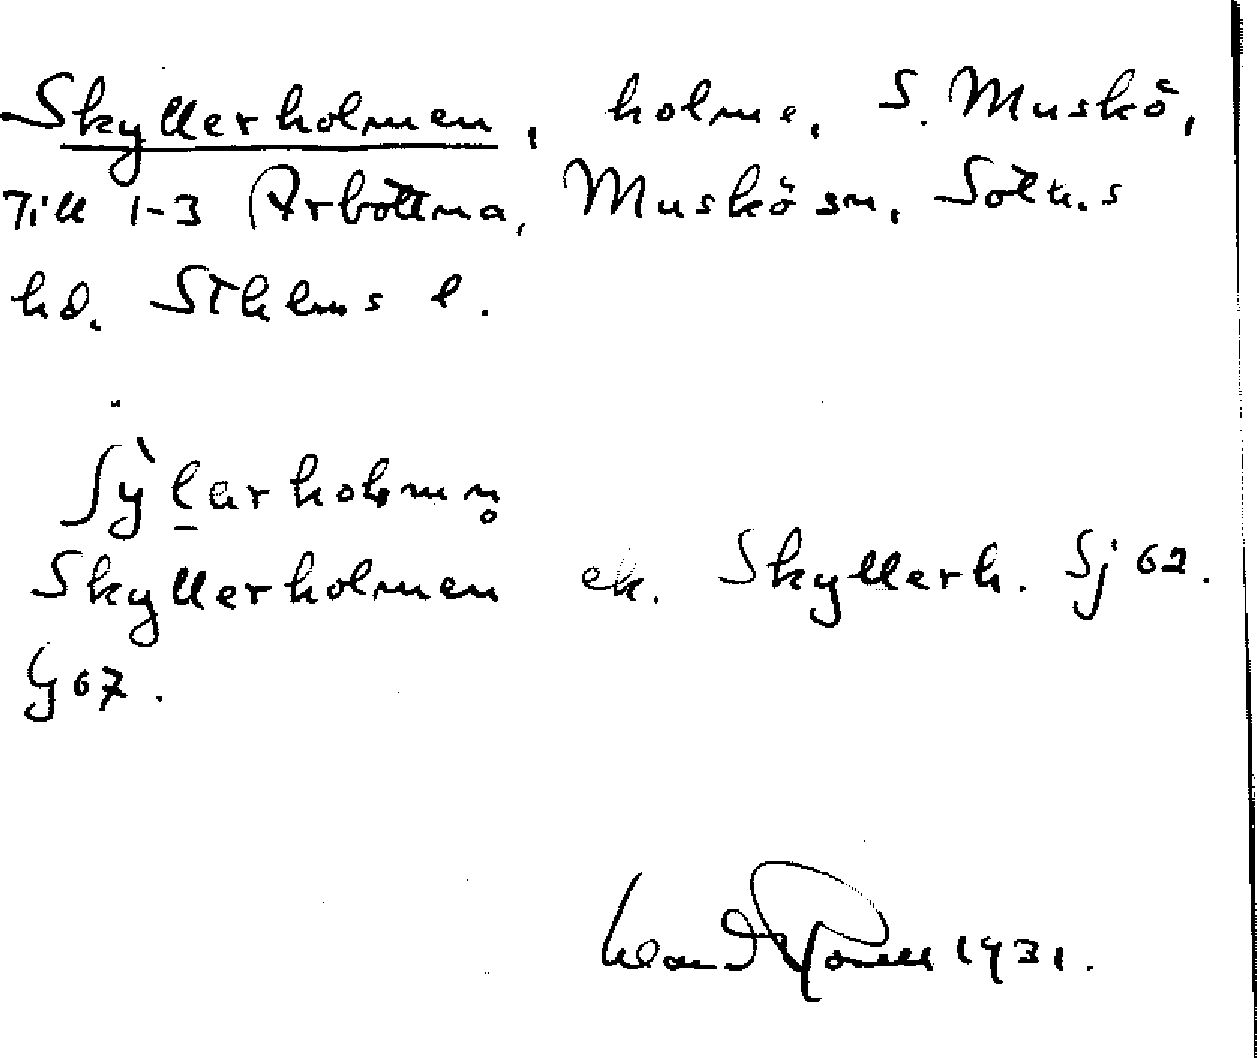 Skyllerholmen, holme, S. Muskö,
Till 1-3 Arbottna, Muskö sn, Soth.s
hd. Sthlms l.
ʃỳlarholmn̥
Skyllerholmen ek. Skyllerh. Sj 62.
Gj 67.
1931.